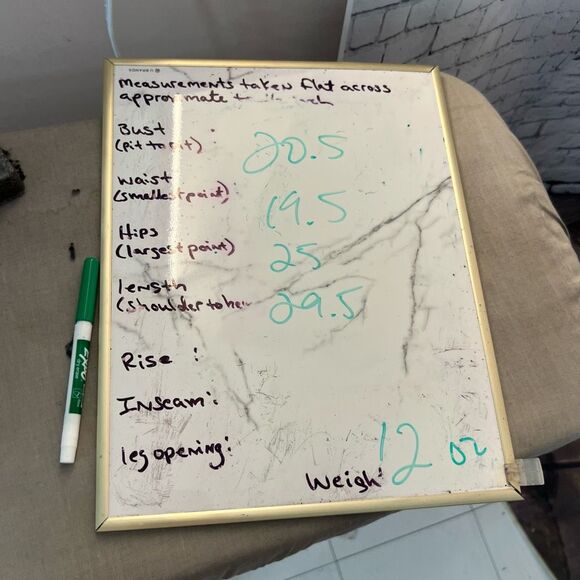 U BRANDS
Measurements taken flat across
approximate
Bust :
(pit to pit) : 20.5
Waist
(smallest point) : 19.5
Hips
(largest point) 25
length
(shoulder to hem 29.5
Rise :
Inseam :
leg opening :
12 oz
Weigh
EXPO